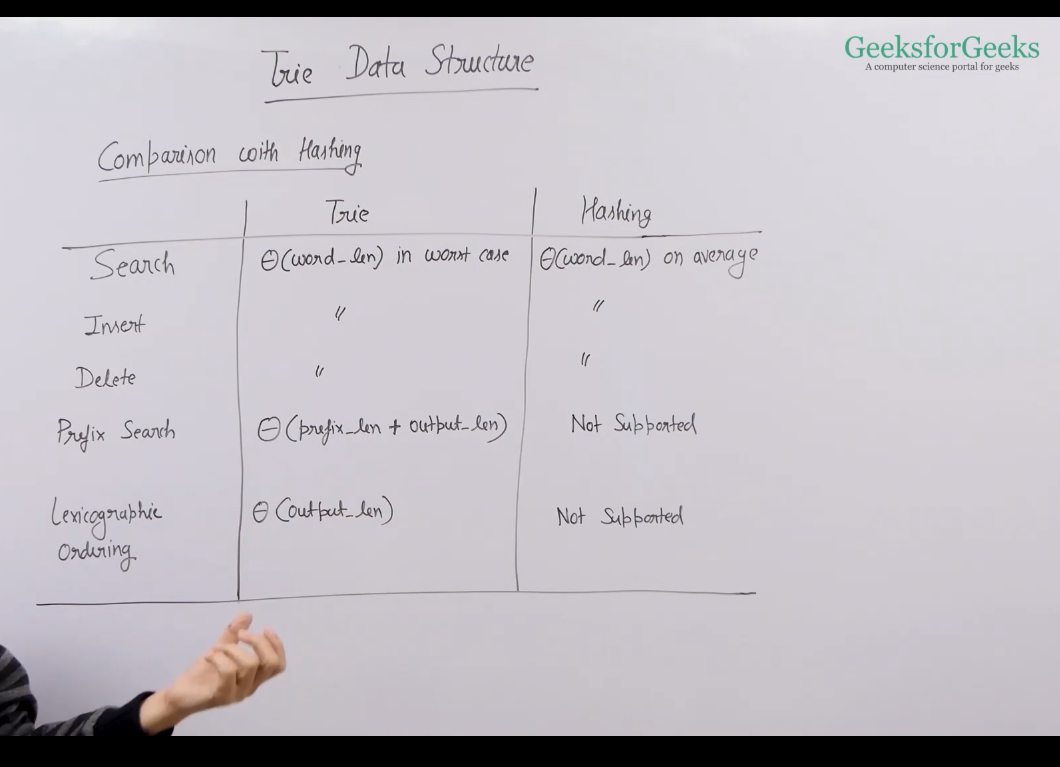 Trie Data Structure
GeeksforGeeks
A computer science portal for geeks
Comparison with Hashing
Trie Hashing
Search Θ(word_len) in worst case Θ(word_len) on average
Insert " "
Delete " "
Prefix Search Θ(prefix_len + output_len) Not Supported
Lexicographic Θ(output_len) Not Supported
Ordering